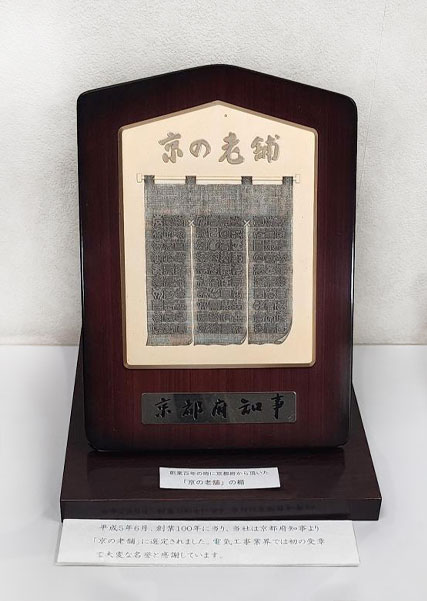 京の老舗
京都府知事
創業百年の時に京都府から頂いた
「京の老舗」の楯
平成5年6月、創業100年に当り、当社は京都府知事より
「京の老舗」に選定されました。電気工事業界では初の受章
で大変な名誉と感謝しています。